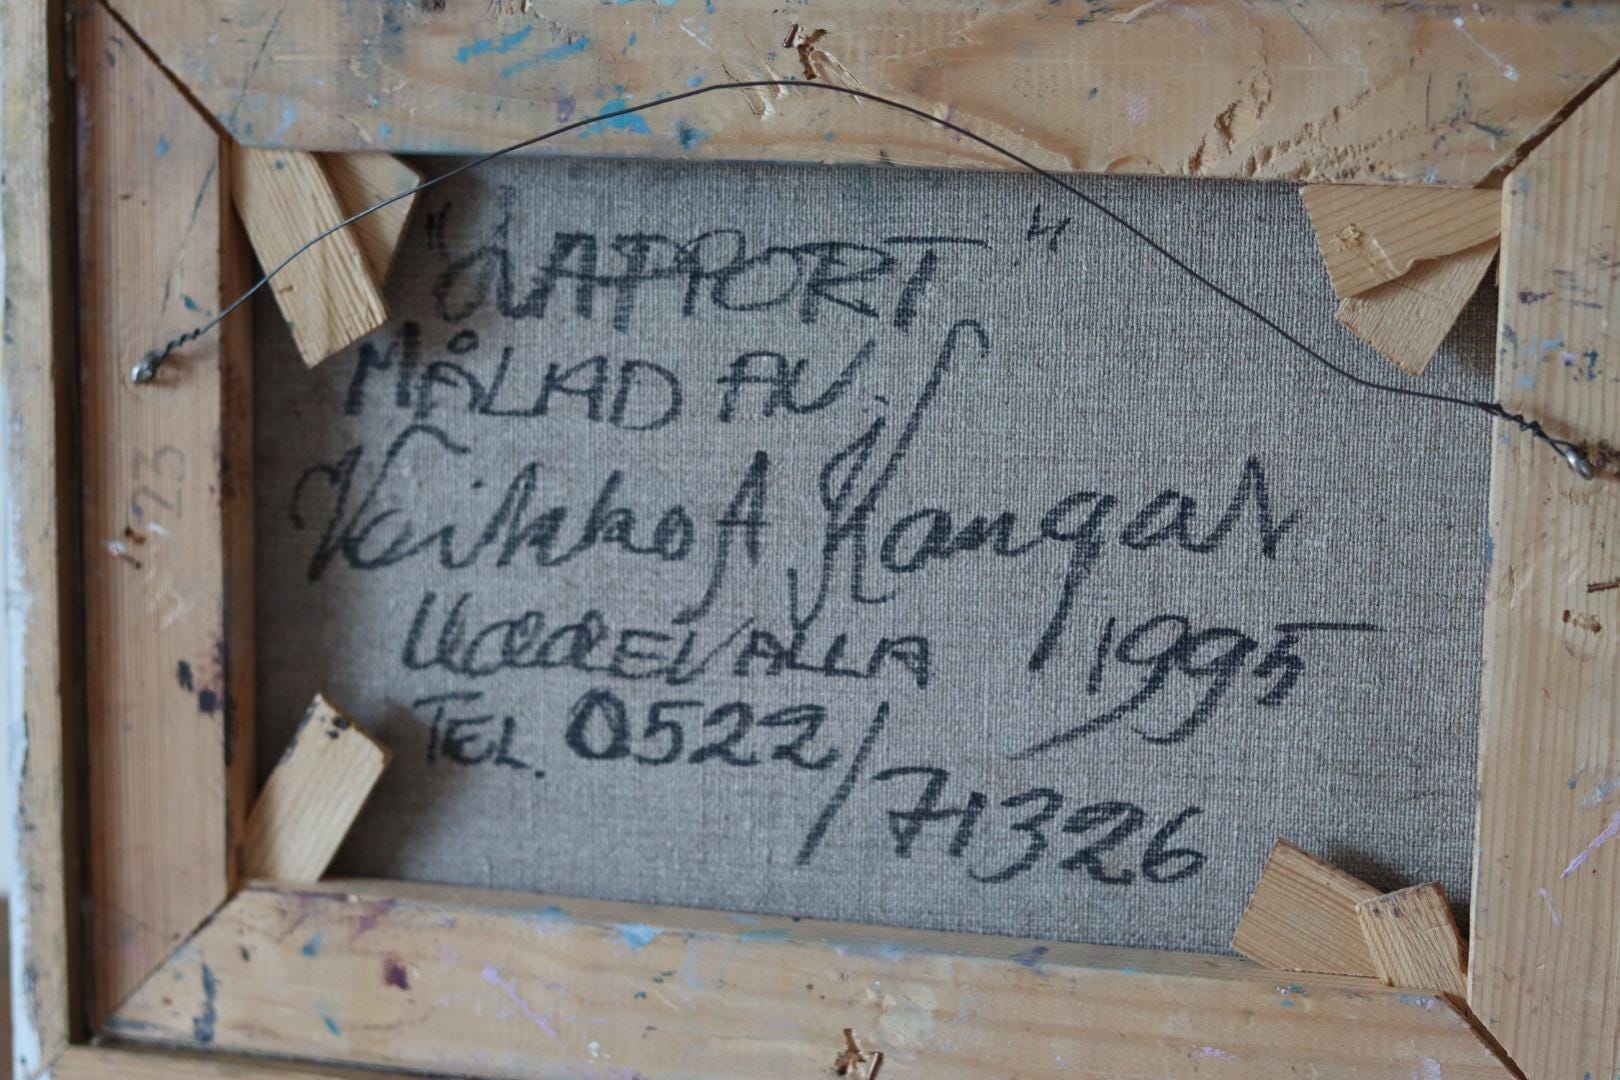 "ÖVAPPORT"
MÅLAD AV:
Veikko A Kangas
UDDEVALLA 1995
TEL. 0522/71326
23